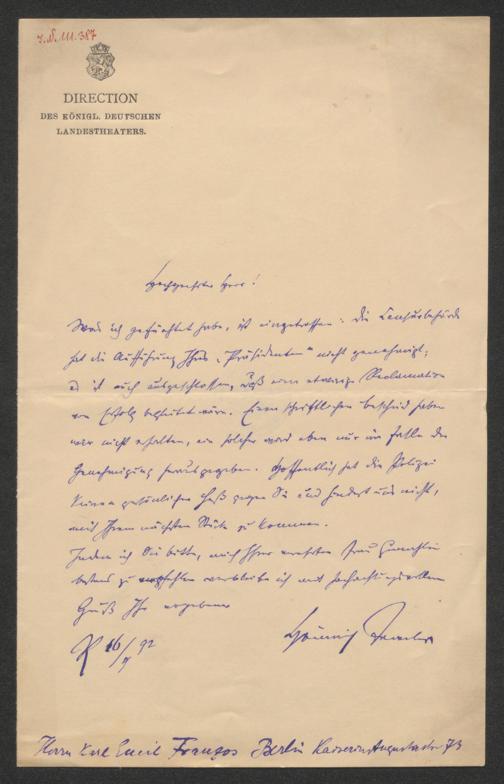 I.N. 111.387
DIRECTION
DES KÖNIGL. DEUTSCHEN
LANDESTHEATERS.
Hochgeehrter Herr!
Was ich gefürchtet habe, ist eingetroffen: die Censurbehörde
hat die Aufführung Ihres „Präsidenten“ nicht genehmigt;
es ist auch ausgeschlossen, daß eine etwaige Reclamation
von Erfolg begleitet wäre. Einen schriftlichen Bescheid haben
wir nicht erhalten, ein solcher wird eben nur im Falle der
Genehmigung herausgegeben. Hoffentlich hat die Polizei
keinen persönlichen Haß gegen Sie und hindert uns nicht,
mit Ihrem nächsten Stücke zu kommen.
Indem ich Sie bitte, mich Ihrer verehrten Frau Gemahlin
bestens zu empfehlen verbleibe ich mit hochachtungsvollem
Gruß Ihr ergebener
16/ 92
Heinrich Teweles
Herrn Karl Emil Franzos Berlin Kaiserin Augustastr 71